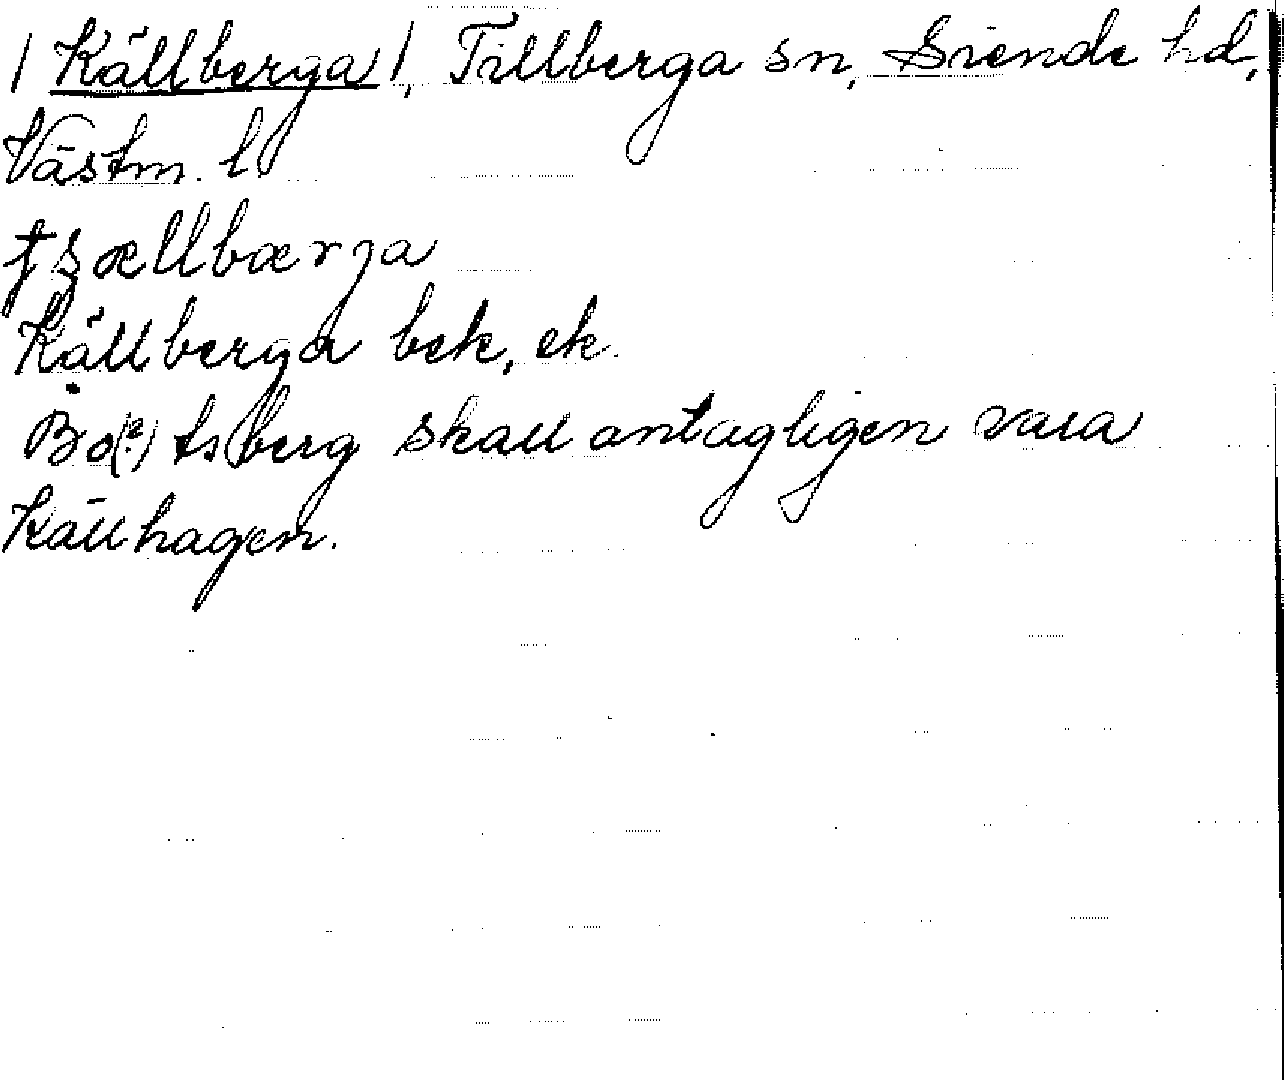 / Källberga /, Tillberga sn, Siende hd,
Västm. l
tsællbærga
Källberga bek, ek.
Bo(?)tsberg skall antagligen vara
Källhagen.